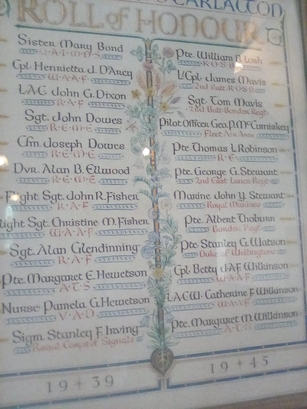 CARLATTON
ROLL of HONOUR
Sister Mary Bond
Cpl. Henrietta J. D'Arcy
W·A·A·F
LAC John G. Dixon
R·A·F
Sgt. John Dowes
R·E·M·E
Cfn. Joseph Dowes
R·E·M·E
Dvr. Alan B. Ellwood
Flight Sgt. John R. Fisher
R·A·F
Flight Sgt. Christine M. Fisher
W·A·A·F
Sgt. Alan Glendinning
R·A·F
Pte. Margaret E. Hewetson
A·T·S
Nurse Pamela G. Hewetson
V·A·D
Sigm. Stanley F. Irving
Royal Corps of Signals
Pte. William B. Lush
L/Cpl. James Mavis
Sgt. Tom Mavis
Pilot Officer Geo. P.
Fleet Air Arm
Pte. Thomas L. Robinson
Pte. George G. Stewart
Marine John Y. Stewart
Royal Marines
Pte. Albert Thoburn
Border Regt.
Pte. Stanley G. Watson
Duke of Wellingtons
Cpl. Betty Wilkinson
W·A·A·F
LACW. Catherine F. Wilkinson
W·A·A·F
Pte. Margaret M. Wilkinson
A·T·S
19 + 39
19 + 45